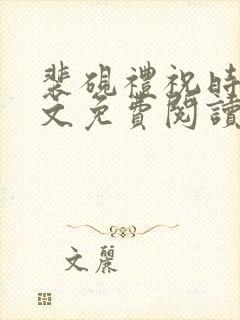 裴硯禮祝時
文免費閱讀
文麗